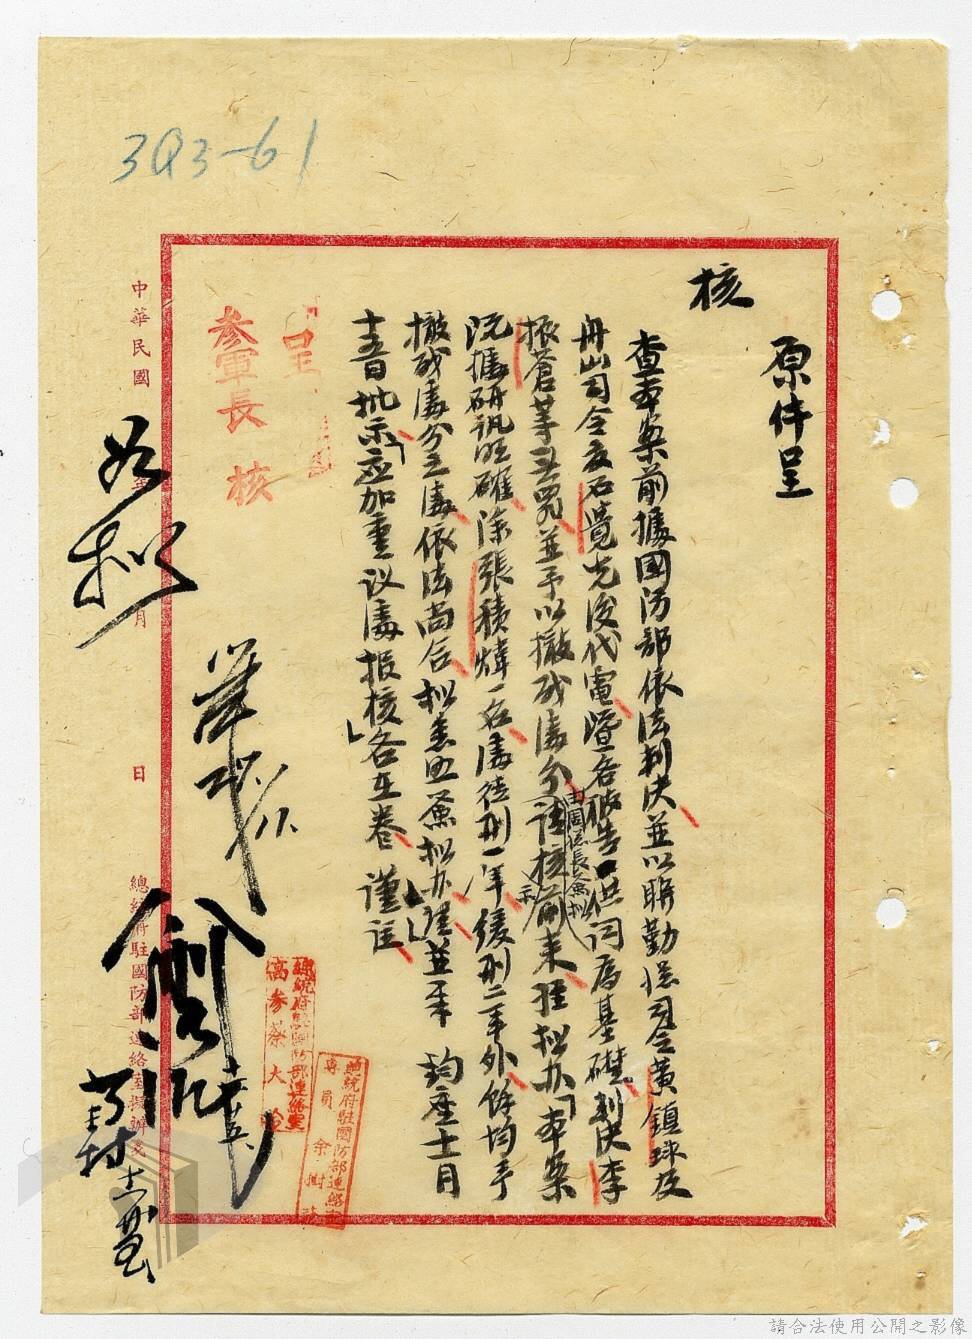 3Q3-61
原件呈
核
查本案前據國防部依法判決並以聯勤總司令黃鎮球及
舟山司令官石覺先後代電暨各被告供詞為基礎判決李
振蒼等五罪並予以撤職處分請核示前來經拟办「本案
由周局長簽拟
既據研訊明確除張積煒一名處徒刑一年緩刑二年外餘均予
撤職處分之處依法尚合拟悉照簽拟办理並奉 鈞座十二月
十五日批示「應加重议處报核」各在卷謹註
呈
參軍長 核
中華民國 年 月 日
總統府駐國防部連絡室擬辦箋
如拟
總統府駐國防部連絡室
高參蔡大
總統府駐國防部連絡室
專員 余樹
請合法使用公開之影像